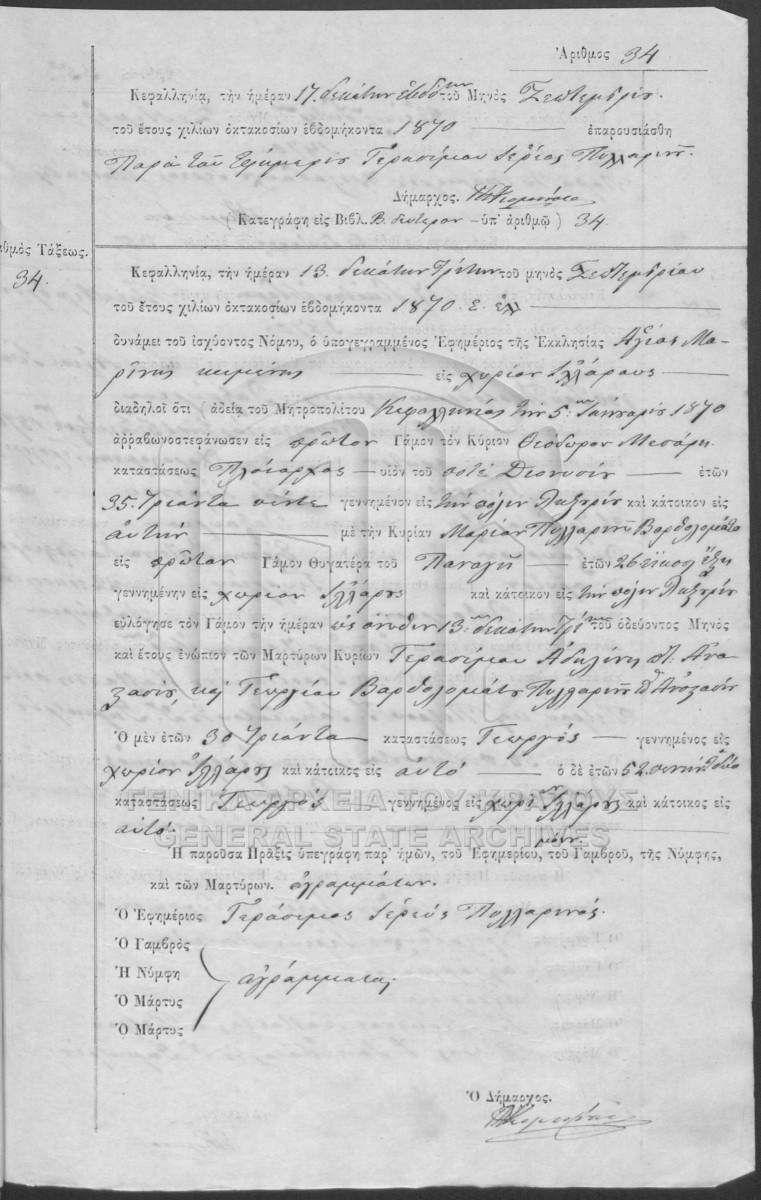 Ἀριθμὸς 34
Κεφαλληνία, τὴν ἡμέραν 17. δεκάτην ἑβδόμην τοῦ Μηνὸς Σεπτεμβρίου
τοῦ ἔτους χιλίων ὀκτακοσίων ἑβδομήκοντα 1870 ἐπαρουσιάσθη
Παρὰ τοῦ Ἐφημερίου Γερασίμου Ἱερέως Πυλλαρινοῦ.
Δήμαρχος.
(Κατεγράφη εἰς Βιβλ. Β. δεύτερον ὑπ' ἀριθμῷ) 34
ιθμὸς Τάξεως.
34.
Κεφαλληνία, τὴν ἡμέραν 13. δεκάτην Τρίτην τοῦ μηνὸς Σεπτεμβρίου
τοῦ ἔτους χιλίων ὀκτακοσίων ἑβδομήκοντα 1870. ἔ. ἐχ
δυνάμει τοῦ ἰσχύοντος Νόμου, ὁ ὑπογεγραμμένος Ἐφημέριος τῆς Ἐκκλησίας Ἁγίας Μα-
ρίνης κειμένης εἰς χωρίον Ἰλλάρους
διαδηλοῖ ὅτι (ἀδείᾳ τοῦ Μητροπολίτου Κεφαλληνίας τὴν 5: Ἰανουαρίου 1870
ἀῤῥαβωνοστεφάνωσεν εἰς πρῶτον Γάμον τὸν Κύριον Θεόδωρον Μεσάρη
καταστάσεως Πλοίαρχος υἱὸν τοῦ ποτὲ Διονυσίου ἐτῶν
35. Τριάντα πέντε γεννημένον εἰς τὴν πόλιν Ληξουρίου καὶ κάτοικον εἰς
αὐτὴν μὲ τὴν Κυρίαν Μαρίαν Πυλλαρινοῦ Βαρθολομάτο
εἰς πρῶτον Γάμον Θυγατέρα τοῦ Παναγῆ ἐτῶν 26 εἴκοσι ἕξη
γεννημένην εἰς χωρίον Ἰλλάρους καὶ κάτοικον εἰς τὴν πόλιν Ληξουρίου
εὐλόγησε τὸν Γάμον τὴν ἡμέραν ὡς ἄνωθεν 13: δεκάτην Τρίτην τοῦ ὁδεύοντος Μηνὸς
καὶ ἔτους ἐνώπιον τῶν Μαρτύρων Κυρίων Γερασίμου Ἀδιλίνη π. Ἀνα-
στασίου, καὶ Γεωργίου Βαρθολομάτου Πυλλαρινοῦ π. Ἀναστασίου
Ὁ μὲν ἐτῶν 30 Τριάντα καταστάσεως Γεωργός γεννημένος εἰς
χωρίον Ἰλλάρους καὶ κάτοικος εἰς αὐτό ὁ δὲ ἐτῶν 52
καταστάσεως Γεωργός γεννημένος εἰς χωρίον Ἰλλάρους καὶ κάτοικος εἰς
αὐτό.
ΓΕΝΙΚΑ ΑΡΧΕΙΑ ΤΟΥ ΚΡΑΤΟΥΣ
GENERAL STATE ARCHIVES
Ἡ παροῦσα Πρᾶξις ὑπεγράφη παρ' ἡμῶν, τοῦ Ἐφημερίου, μόνον τοῦ Γαμβροῦ, τῆς Νύμφης,
καὶ τῶν Μαρτύρων. ἀγραμμάτων.
Ὁ Ἐφημέριος Γεράσιμος Ἱερεὺς Πυλλαρινός.
Ὁ Γαμβρὸς
Ἡ Νύμφη ἀγράμματοι
Ὁ Μάρτυς
Ὁ Μάρτυς
Ὁ Δήμαρχος.